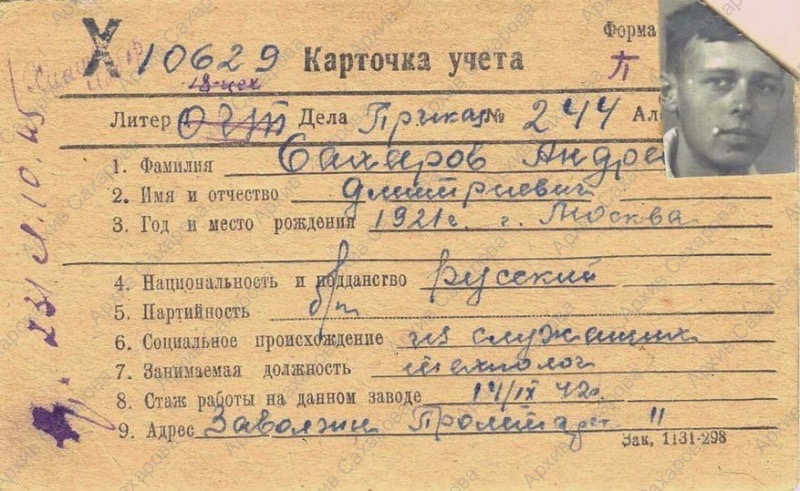 Форма
Х 10629 Карточка учета П
18-цех
Литер Дела Приказ № 244 Ал
1. Фамилия Сахаров Андре
2. Имя и отчество Дмитриевич
3. Год и место рождения 1921 г. г. Москва
4. Национальность и подданство русский
5. Партийность б/п
6. Социальное происхождение из служащих
7. Занимаемая должность технолог
8. Стаж работы на данном заводе 14/IX 42г.
9. Адрес Заволжье Пролетарс. 11
Зак, 1131-298
Архив Сахарова